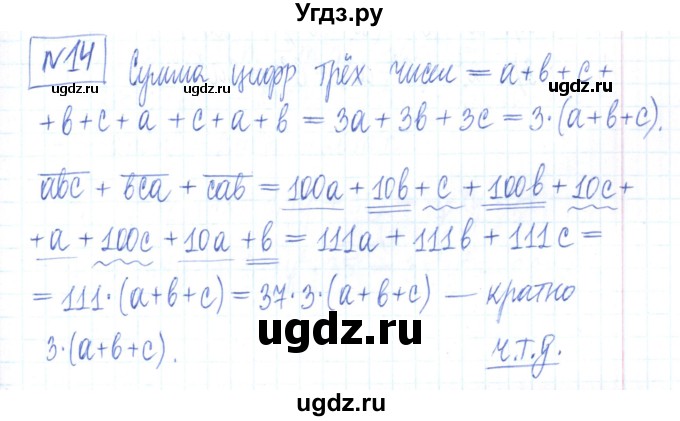 Угдз.ру
№14 Сумма цифр трёх чисел = a+b+c+
ugdz.ru ugdz.ru ugdz.ru
+b+c+a +c+a+b = 3a+3b+3c = 3·(a+b+c).
abc + bca + cab = 100a+10b+c+100b+10c+
+a+100c+10a+b = 111a+111b+111c=
= 111·(a+b+c) = 37·3·(a+b+c) — кратно
ugdz.ru ugdz.ru
3·(a+b+c). ч.т.д.
ugdz.ru